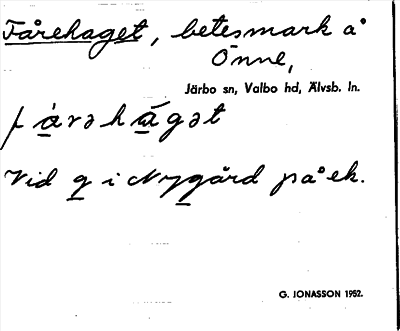 Fårehaget, betesmark å
Önne,
Järbo sn, Valbo hd, Älvsb. ln.
fȧrəhágət
Vid g i Nygård på ek.
G. JONASSON 1952.